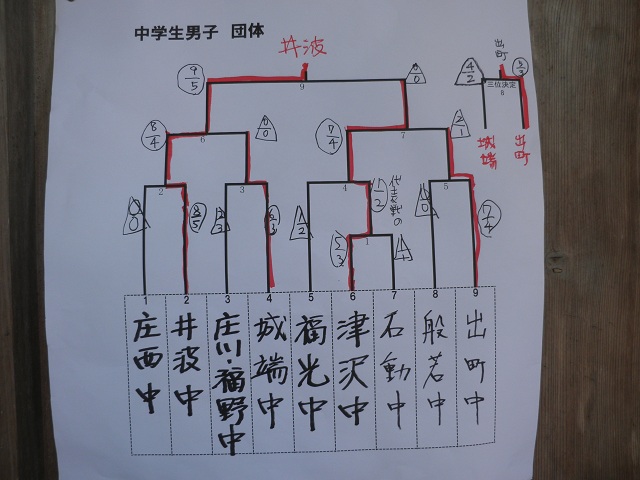 中学生男子 団体
井波
出町
9/5
0/0
4/2
5/3
三位決定
9
8
城端
出町
8/4
0/0
7/4
2/1
6
7
2
3
4
5
1/2
代表戦の
0/0
8/5
2/3
6/3
1/2
5/3
1
1/1
1/0
7/4
1 2 3 4 5 6 7 8 9
庄西中
井波中
庄川・福野中
城端中
福光中
津沢中
石動中
般若中
出町中